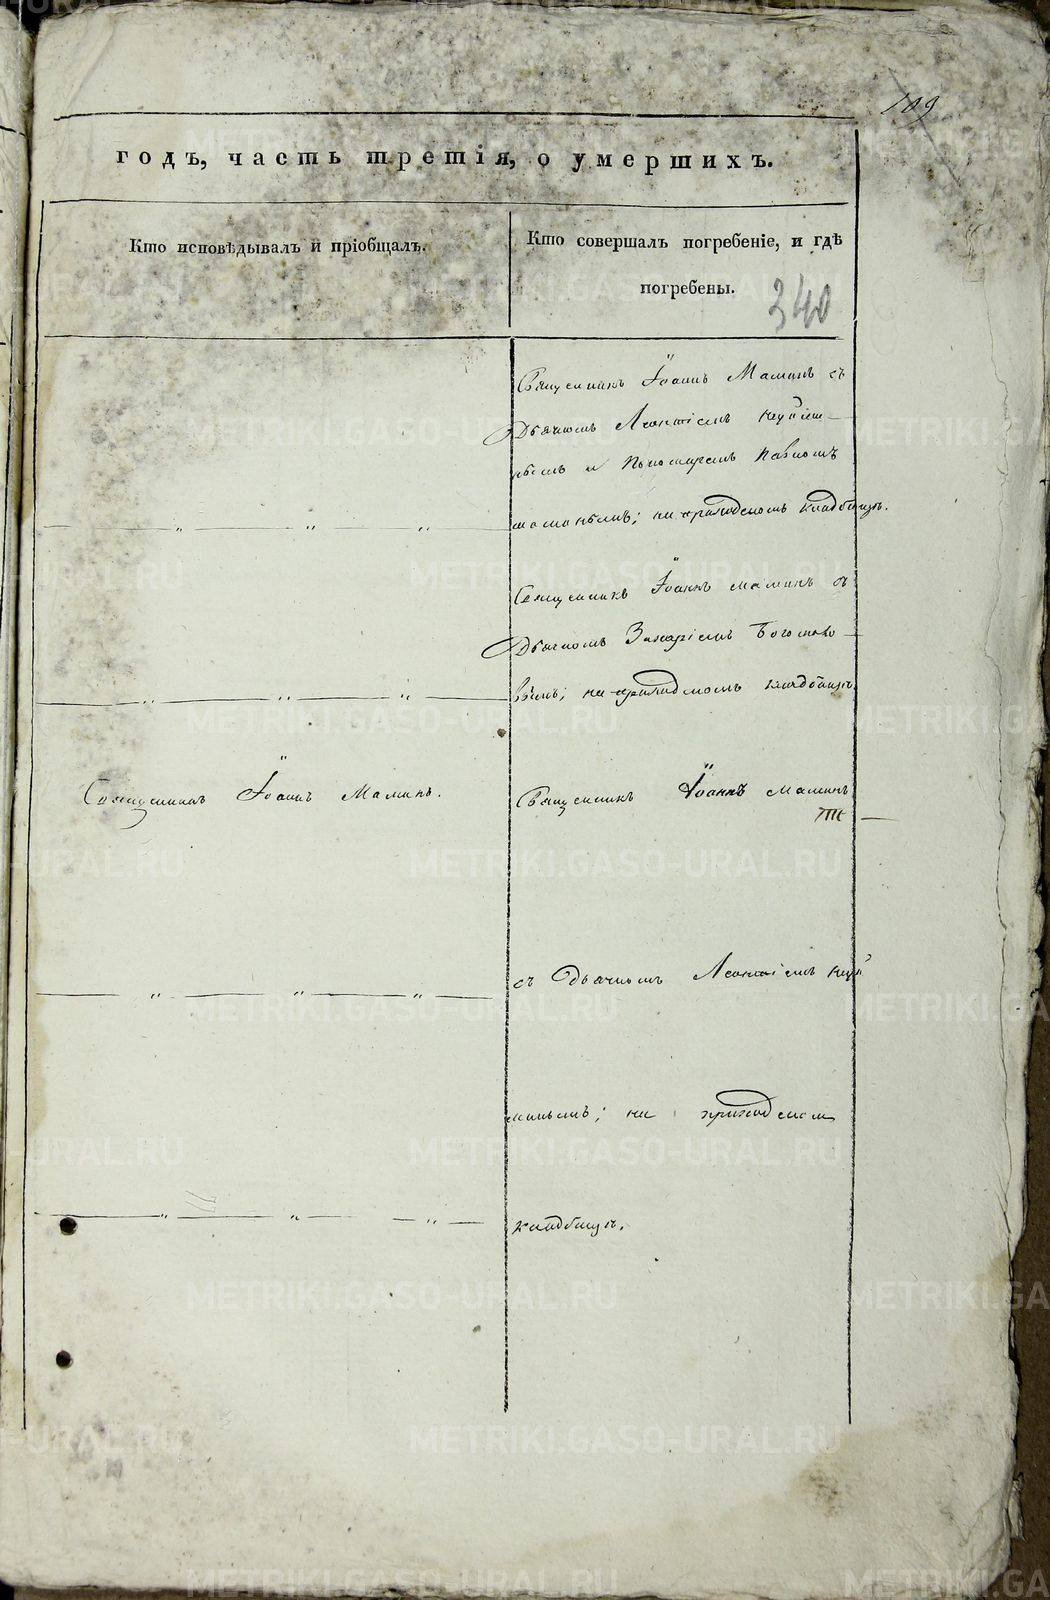 109
годъ, часть третія, о умершихъ.
Кто исповѣдывалъ и пріобщалъ.
Кто совершалъ погребеніе, и гдѣ
погребены.
340
Священникъ Іоаннъ Маминъ съ
Дьячкомъ Леонтіемъ
и Пономаремъ Павломъ
; на приходскомъ кладбищѣ.
Священникъ Іоаннъ Маминъ съ
Дьячкомъ Захаріемъ Богосло-
; на приходскомъ кладбищѣ
Священникъ Іоаннъ Маминъ.
Священникъ Іоаннъ Маминъ
съ Дьячкомъ Леонтіемъ
; на приходскомъ
кладбищѣ.
METRIKI.GASO-URAL.RU